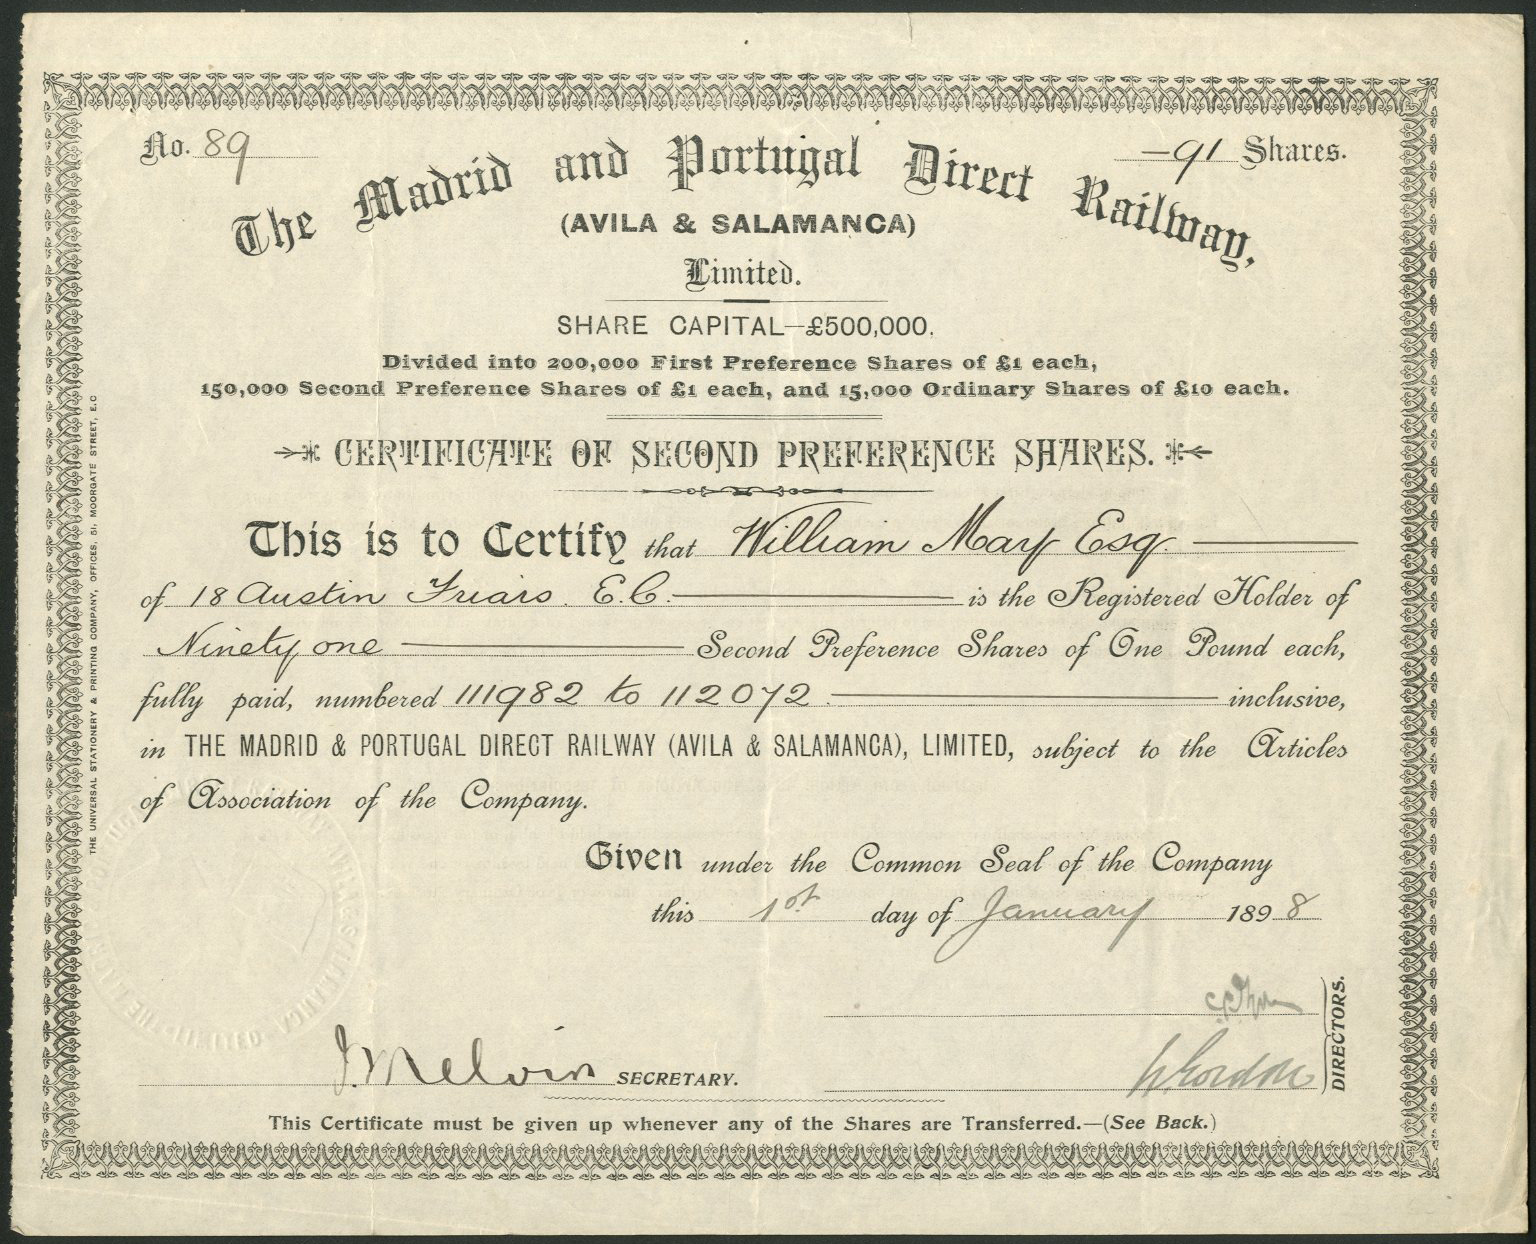 No. 89
—91 Shares.
The Madrid and Portugal Direct Railway,
(AVILA & SALAMANCA)
Limited.
SHARE CAPITAL—£500,000.
Divided into 200,000 First Preference Shares of £1 each,
150,000 Second Preference Shares of £1 each, and 15,000 Ordinary Shares of £10 each.
CERTIFICATE OF SECOND PREFERENCE SHARES.
This is to Certify that William May Esq.
of 18 Austin Friars. E.C. is the Registered Holder of
Ninety one Second Preference Shares of One Pound each,
fully paid, numbered 111982 to 112072 inclusive,
in THE MADRID & PORTUGAL DIRECT RAILWAY (AVILA & SALAMANCA), LIMITED, subject to the Articles
of Association of the Company.
Given under the Common Seal of the Company
this 1st day of January 1898
J. Melvin SECRETARY.
W. Gordon
DIRECTORS.
This Certificate must be given up whenever any of the Shares are Transferred.—(See Back.)
THE UNIVERSAL STATIONERY & PRINTING COMPANY, OFFICES, 51, MOORGATE STREET, E.C